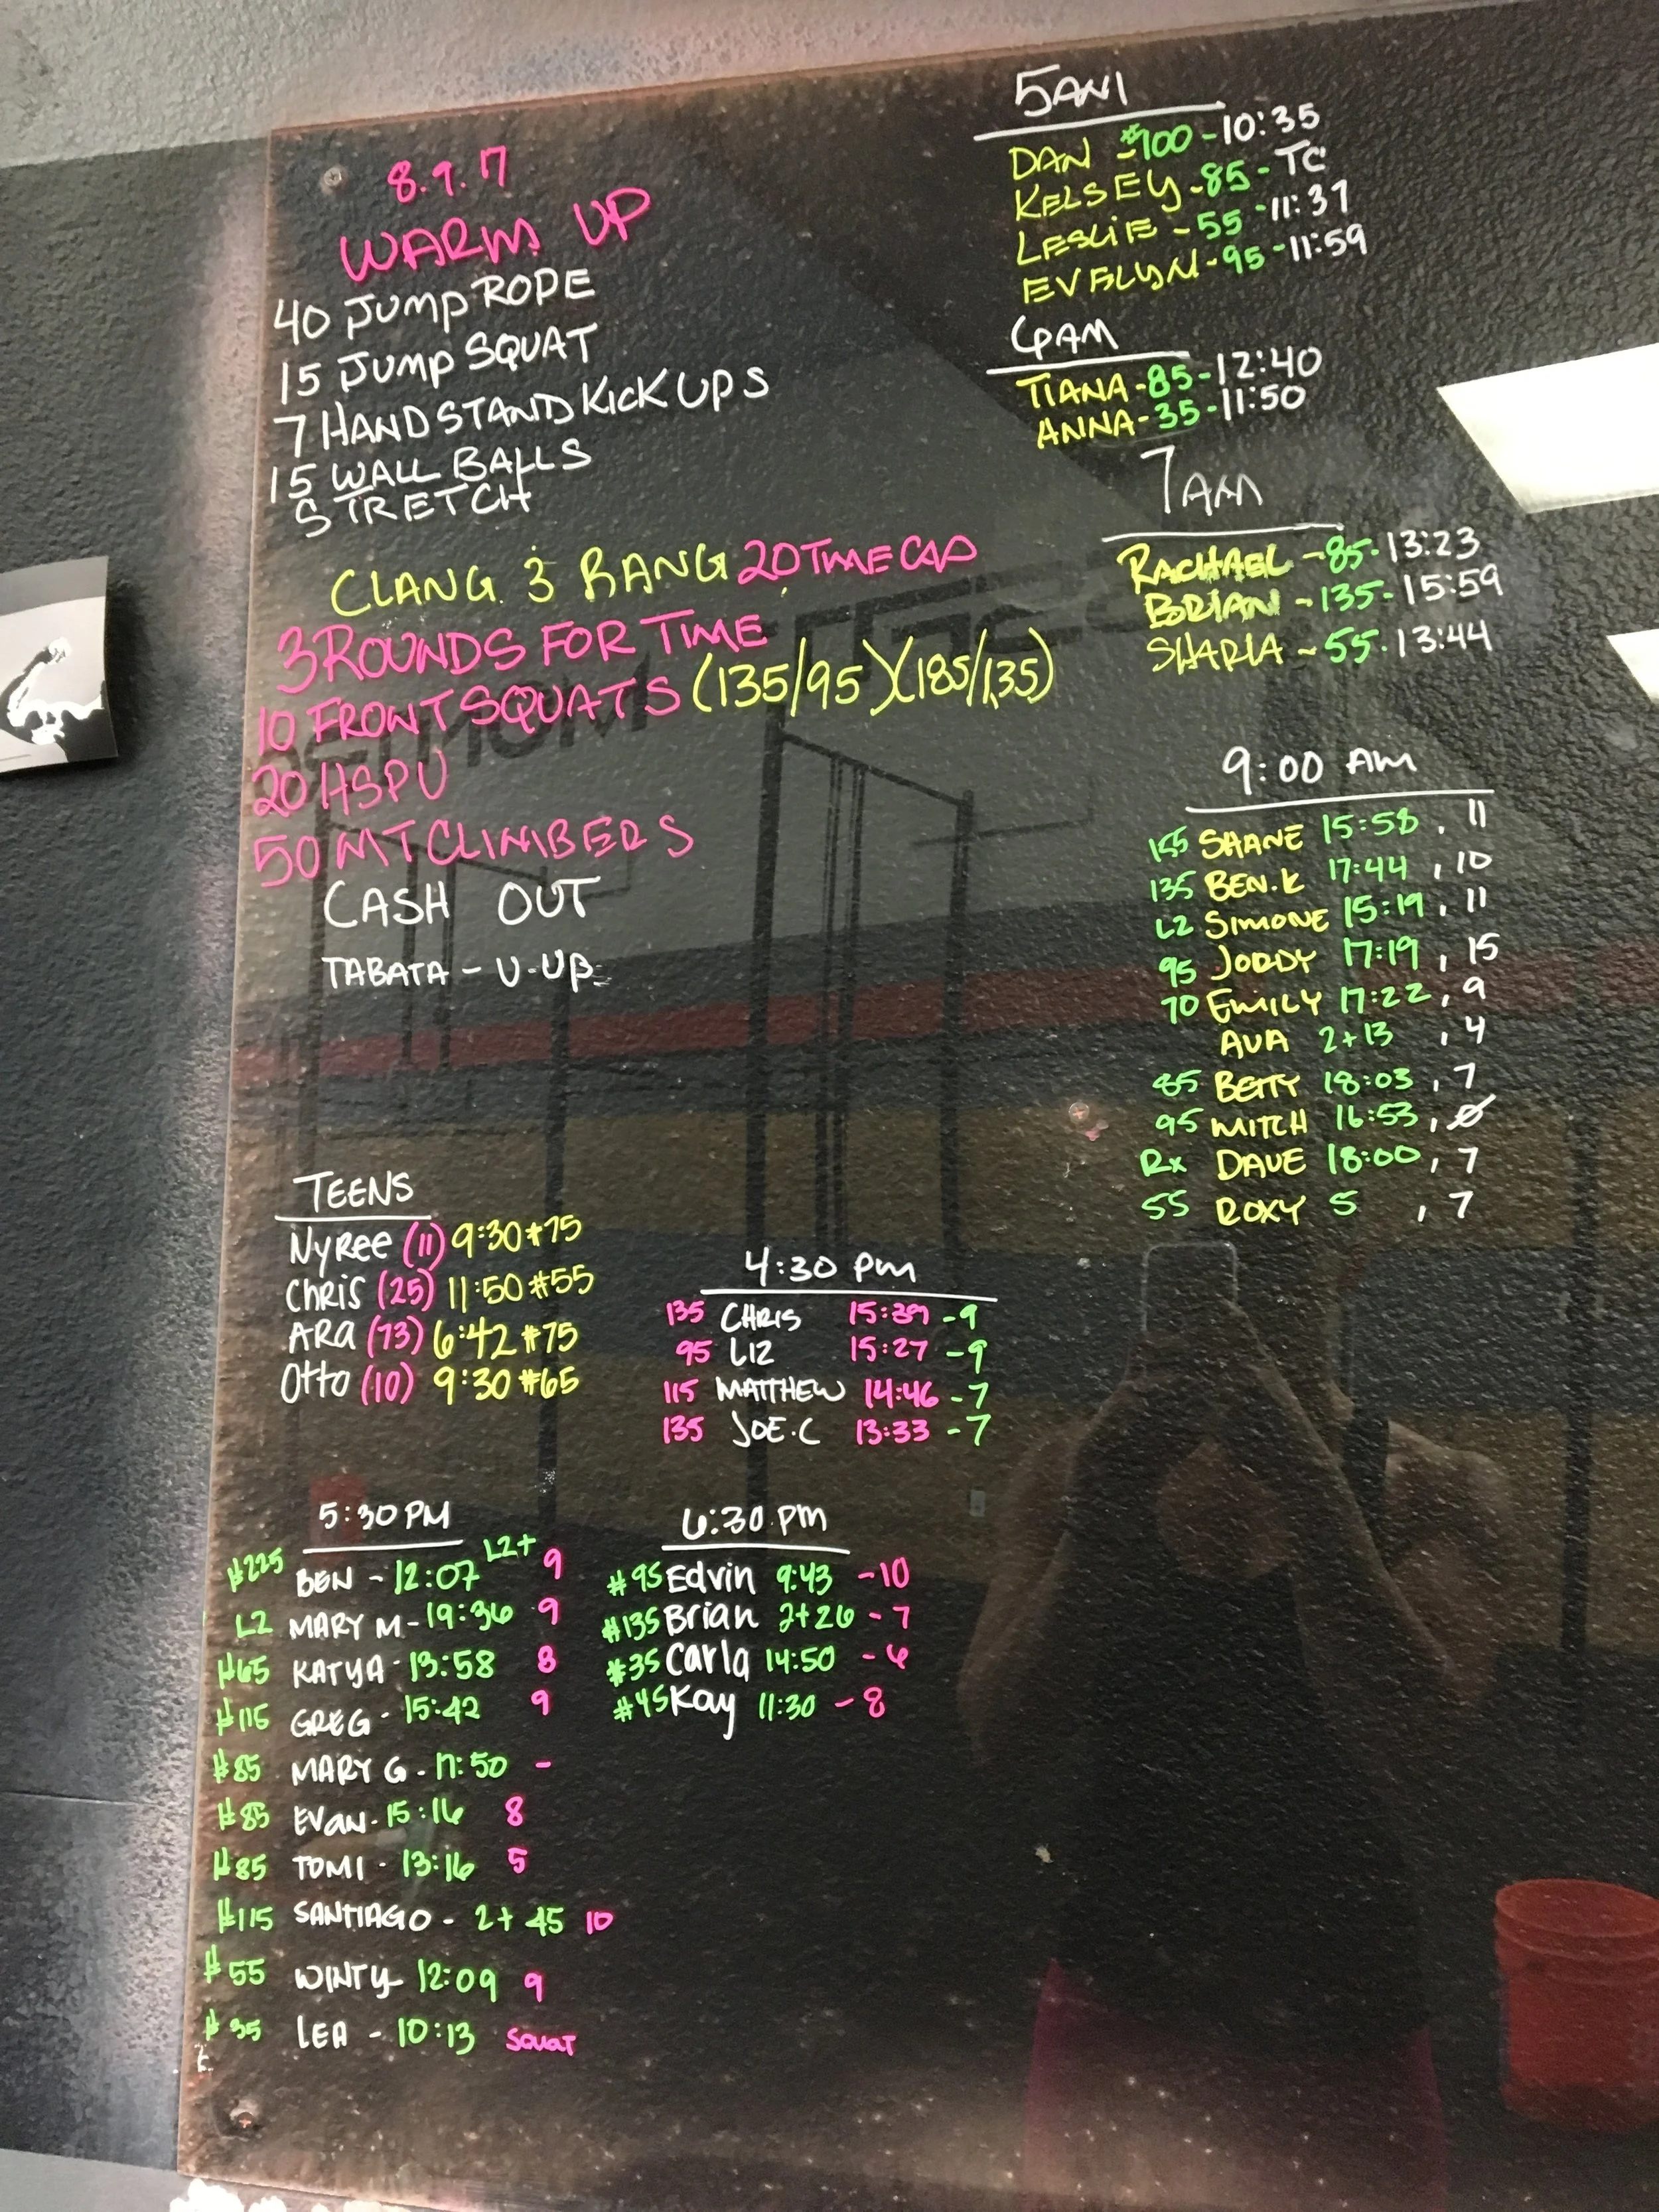 8.9.17
WARM UP
40 JUMP ROPE
15 JUMP SQUAT
7 HANDSTAND KICK UPS
15 WALL BALLS
STRETCH
CLANG 3 BANG 20 TIME CAP
3 ROUNDS FOR TIME
10 FRONT SQUATS (135/95)(185/135)
20 HSPU
50 MT CLIMBERS
CASH OUT
TABATA - U-UP
5AM
DAN - #100 - 10:35
KELSEY - 85 - TC
LESLIE - 55 - 11:37
EVELYN - 95 - 11:59
6AM
TIANA - 85 - 12:40
ANNA - 35 - 11:50
7AM
RACHAEL - 85 - 13:23
BRIAN - 135 - 15:59
SHARLA - 55 - 13:44
9:00 AM
155 SHANE 15:58 , 11
135 BEN.K 17:44 , 10
L2 SIMONE 15:19 , 11
95 JORDY 17:19 , 15
70 EMILY 17:22 , 9
AVA 2+13 , 4
85 BETTY 18:03 , 7
95 MITCH 16:53 , Ø
Rx DAVE 18:00 , 7
55 ROXY 5 , 7
TEENS
Nyree (11) 9:30 #75
Chris (25) 11:50 #55
ARA (73) 6:42 #75
Otto (10) 9:30 #65
4:30 PM
135 CHRIS 15:39 - 9
95 LIZ 15:27 - 9
115 MATTHEW 14:46 - 7
135 JOE.C 13:33 - 7
5:30 PM
#225 BEN - 12:07 L2+ 9
L2 MARY M - 19:36 9
#65 KATYA - 13:58 8
#115 GREG - 15:42 9
#85 MARY G - 17:50 -
#85 EVAN - 15:16 8
#85 TOMI - 13:16 5
#115 SANTIAGO - 2+45 10
#55 WINTY - 12:09 9
#35 LEA - 10:13 SQUAT
6:30 PM
#95 Edvin 9:43 - 10
#135 Brian 2+26 - 7
#35 Carla 14:50 - 6
#45 Kay 11:30 - 8